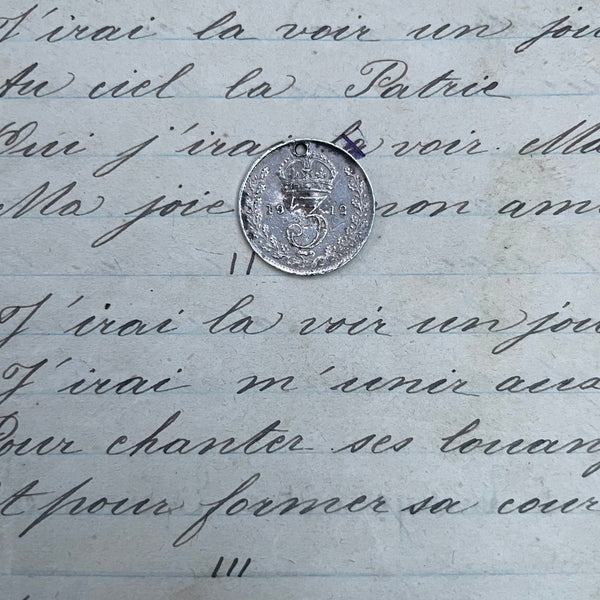 J'irai la voir un jou
Au ciel la Patrie
Oui j'irai la voir Ma
Ma joie mon am
3
1912
II
J'irai la voir un jou
J'irai m'unir aux
Pour chanter ses louang
Et pour former sa cour
III